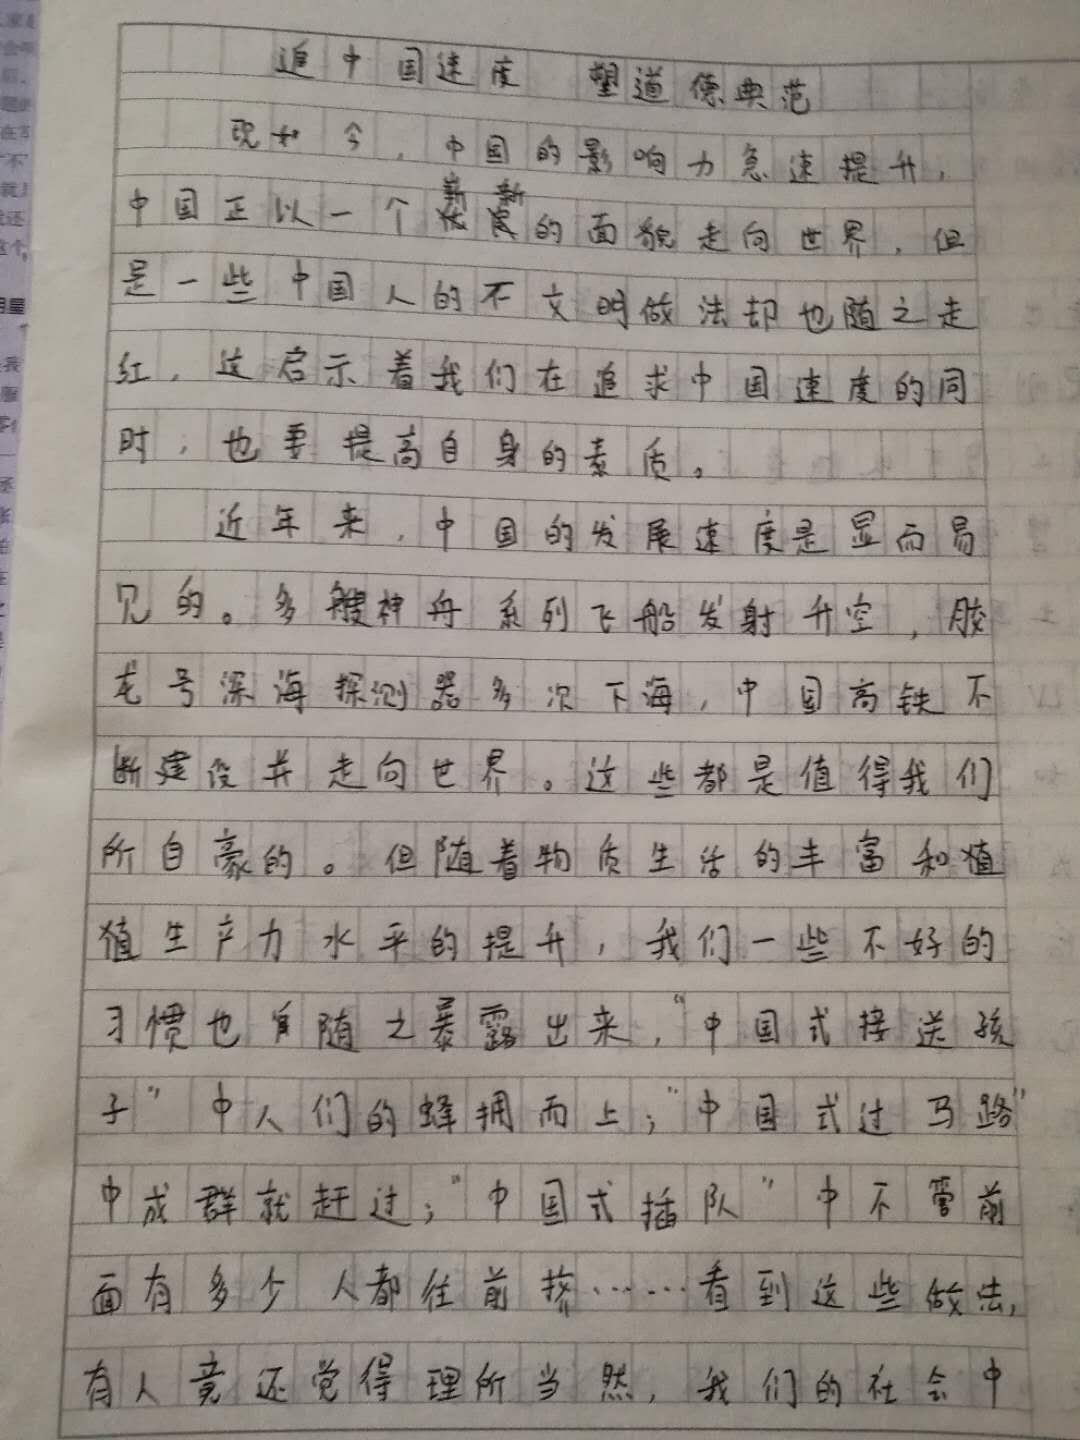 追中国速度 塑道德典范
现如今，中国的影响力急速提升，
中国正以一个崭新的面貌走向世界，但
是一些中国人的不文明做法却也随之走
红，这启示着我们在追求中国速度的同
时，也要提高自身的素质。
近年来，中国的发展速度是显而易
见的。多艘神舟系列飞船发射升空，胶
龙号深海探测器多次下海，中国高铁不
断建设并走向世界。这些都是值得我们
所自豪的。但随着物质生活的丰富和值
值生产力水平的提升，我们一些不好的
习惯也随之暴露出来，“中国式接送孩
子”中人们的蜂拥而上；“中国式过马路”
中成群就赶过；“中国式插队”中不管前
面有多少人都往前挤……看到这些做法，
有人竟还觉得理所当然，我们的社会中